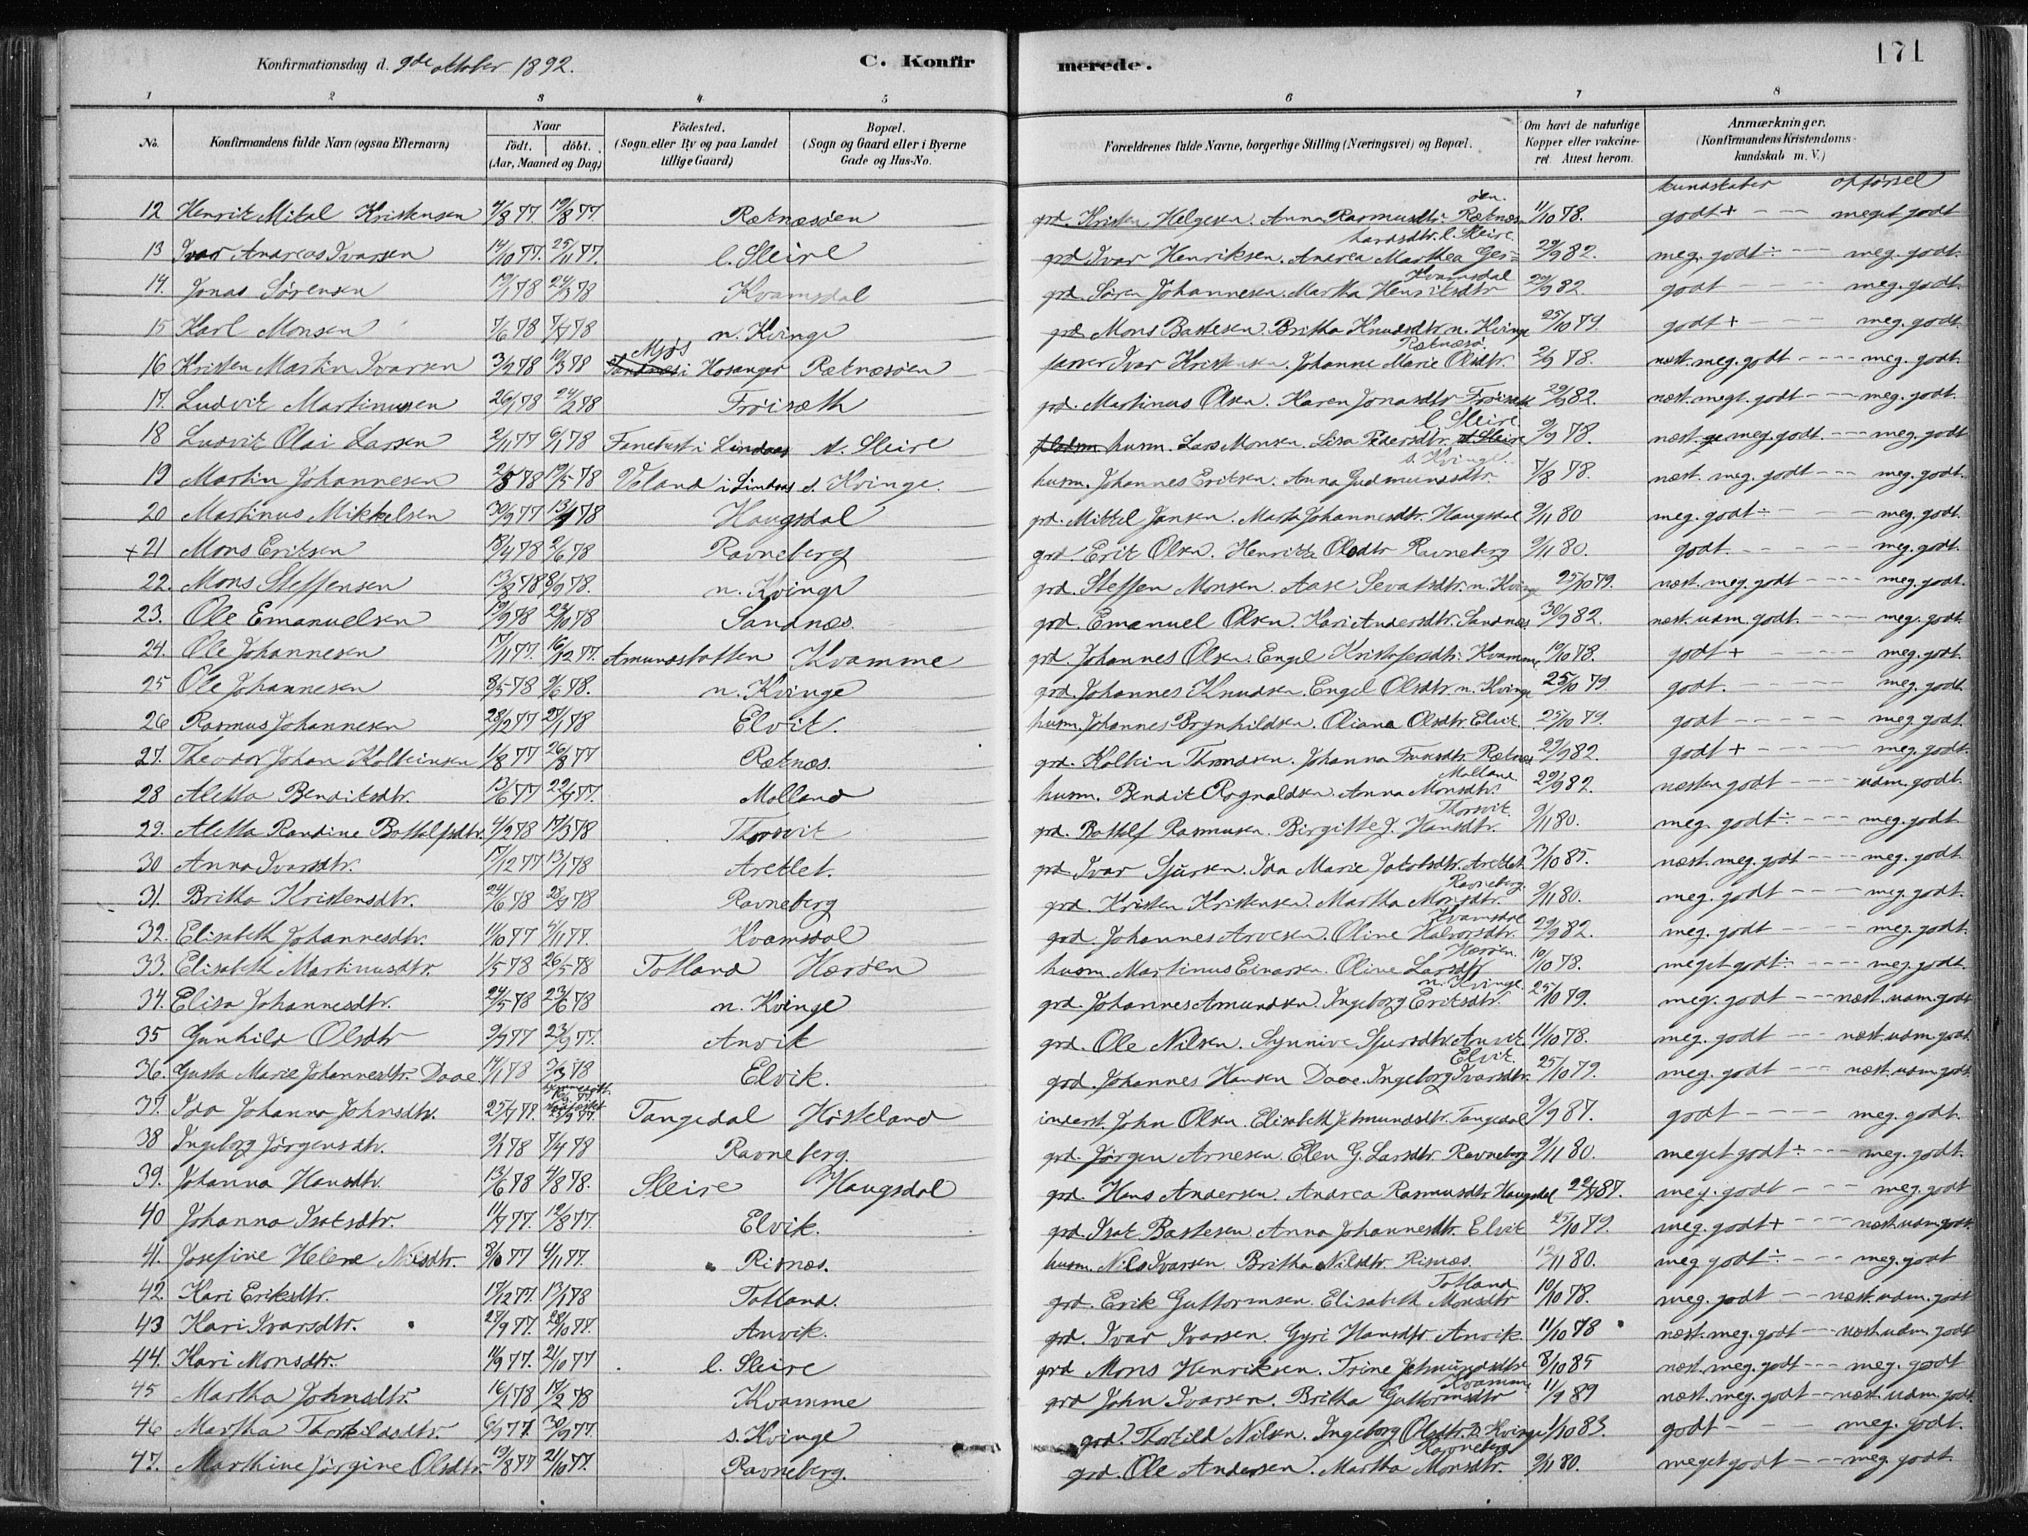 Konfirmationsdag d. 9de oktober 1892.
C. Konfirmerede.
171
1 2 3 4 5 6 7 8
No.
Konfirmandens fulde Navn (ogsaa Efternavn)
Naar
født. døbt.
(Aar, Maaned og Dag)
Fødested.
(Sogn eller By og paa Landet tillige Gaard)
Bopæl.
(Sogn og Gaard eller i Byerne Gade og Hus-No.
Forældrenes fulde Navne, borgerlige Stilling (Næringsvei) og Bopæl.
Om havt de naturlige Kopper eller vakcineret. Attest herom.
Anmærkninger.
(Konfirmandens Kristendomskundskab m. V.)
kundskaber opførsel
12 Henrik Mikal Kristensen 19/8 77 Rætnæsöen grd. Kristen Helgesen. Anna Rasmusdtr. Rætnæsöen 11/10 78. godt + - - meget godt
13 Ivar Andreas Ivarsen 14/10 77. 25/11 77. l. Sleire grd Ivar Henriksen. Andrea Marthea Gerhardsdtr. l. Sleire 29/9 82. meg. godt ÷ - - meg. godt.
14. Jonas Sørensen 19/1 78 24/3 78 Kvamsdal grd. Søren Johannesen. Martha Henriksdtr Kvamsdal 29/9 82. godt - - - meg. godt.
15 Karl Monsen 7/6 78 7/7 78 n. Kvinge grd. Mons Bastesen. Britha Knudsdtr. n. Kvinge 25/10 79. godt + - - meg. godt
16 Kristen Martin Ivarsen 3/2 78 10/3 78 Mjøs i Hosanger Rætnæsöen Ivar Kristensen. Johanne Marie Olsdtr. Rætnæsö. 2/9 78. næst. meg. godt - - - meg. godt.
17. Ludvik Martinussen 26/1 78 24/2 78 Frøiseth grd. Martinus Olsen. Karen Jonasdtr Frøiseth 29/9 82. næst. megt. godt - - - meg. godt.
18 Ludvik Olai Larsen 2/11 77 6/1 78 Fanebust i Lindaas N. Sleire husm. Lars Monsen. Lisa Pedersdtr. l. Sleire 9/9 78. næst. meg. godt. - - - meg. godt
19 Martin Johannesen 2/5 78 19/5 78 Veland i Lindaas s. Kvinge. husm. Johannes Eriksen. Anna Gudmundsdtr. s. Kvinge. 7/8 78. næst. meg. godt - - - meg. godt.
20 Martinus Mikkelsen 30/9 77 13/1 78 Haugsdal grd. Mikkel Jansen. Marta Johannesdtr. Haugsdal 9/11 80 meg. godt ÷ - - meg. godt.
+ 21 Mons Eriksen 18/4 78 2/6 78 Ravneberg grd. Erik Olsen. Henrikke Olsdtr Ravneberg 9/11 80. godt. - - - meg. godt.
22. Mons Steffensen 13/8 78 8/9 78. n. Kvinge grd. Steffen Monsen. Aase Sevatsdtr. n. Kvinge 25/10 79. næst. meg. godt - - - meg. godt.
23. Ole Emanuelsen 19/9 78 27/10 78 Sandnæs. grd. Emanuel Olsen. Kari Andersdtr. Sandnæs 30/9 82. næst. udm. godt. - - meg. godt.
24. Ole Johannesen 17/11 77. 16/12 77. Amundstatten Kvamme grd. Johannes Olsen. Engel Kristofersdtr. Kvamme 19/10 78. godt + - - meg. godt.
25 Ole Johannesen 8/5 78 9/6 78. n. Kvinge grd. Johannes Knudsen. Engel Olsdtr. n. Kvinge 25/10 79. godt. - - - meg. godt
26 Rasmus Johannesen 28/12 77 27/1 78 Elvik. husm. Johannes Brynhildsen. Oliana Olsdtr. Elvik. 25/10 79. godt - - - - meg godt
27. Theodor Johan Kolbeinsen 1/8 77 26/8 77 Rætnæs. grd. Kolbein Throndsen. Johanna Rætnæs 29/9 82. godt + - - - meg. godt.
28 Aletta Bendiksdtr. 13/6 77 22/7 77. Molland husm. Bendik Rognaldsen. Anna Monsdtr. Molland. 29/9 82. næsten godt - - - udm. godt.
29. Aletta Randine Bottolfsdtr. 4/2 78 17/3 78 Thorsvik grd. Bottolf Rasmusen. Birgitte J. Hansdtr. Thorsvik 9/11 80. meg. godt ÷ - - - meg. godt.
30 Anna Ivarsdtr. 17/12 77 13/1 78 Areklet. grd. Ivar Sjursen. Ida Marie Jakobsdtr. Areklet. 3/10 85. næst. meg. godt - - - meg. godt.
31. Britha Kristensdtr. 24/6 78 28/7 78 Ravneberg grd. Kristen Kristensen. Martha Monsdtr. Ravneberg. 9/11 80. meg. godt - - - meg. godt.
32. Elisabeth Johannesdtr. 11/10 77 4/11 77. Kvamsdal grd. Johannes Arvesen. Oline Halvorsdtr. Kvamsdal 29/9 82. meg. godt - - - meg. godt.
33. Elisabeth Martinusdtr. 1/5 78 26/5 78 Totland Hærøen husm. Martinus Einarsen. Oline Larsdtr Hærøen. 10/10 78. meget godt ÷ - - - meg. godt.
34. Elisa Johannesdtr. 24/5 78 23/6 78 n. Kvinge grd. Johannes Amundsen. Ingeborg Eriksdtr. n. Kvinge 25/10 79. meg. godt - - - næst. udm. godt
35 Gunhild Olsdtr 2/9 77 23/9 77. Anvik grd. Ole Nilsen. Synnive Sjursdtr Anvik 11/10 78. meg. godt - - - næst. udm godt.
36. Gusta Marie Johannesdtr. Daae 17/1 78 3/3 78 Elvik. grd. Johannes Hansen Daae. Ingeborg Ivarsdtr. Elvik. 25/10 79. meg. godt - - - næst. udm godt
37. Ida Johanna Johnsdtr. 25/7 77. 23/9 77. Tangedal Høsteland inderst. John Olsen. Elisabeth Jetmundsdtr. Tangedal 9/9 87. godt - - - - meg. godt.
38 Ingeborg Jørgensdtr. 2/1 78 7/4 78 Ravneberg. grd. Jørgen Arnesen. Elen G. Larsdtr. Ravneberg 9/11 80. meget godt ÷ - - - meg. godt.
39. Johanna Hansdtr. 13/6 78 4/8 78. Sleire Haugsdal grd. Hans Andersen. Andrea Rasmusdtr. Haugsdal 22/9 87. meg. godt - - - meg. godt
40 Johanna Isaksdtr. 11/7 77. 19/8 77. Elvik. grd. Isak Bastesen. Anna Johannesdtr. Elvik 25/10 79. meg. godt + - - - næst. udm godt.
41. Josefine Helene Nilsdtr. 3/10 77 4/11 77. Risnæs. husm. Nils Ivarsen Britha Nilsdtr. Risnæs. 12/11 80. meg godt ÷ - - - meg. godt
42. Kari Eriksdtr. 17/12 77. 13/1 78 Totland. grd. Erik Guttormsen. Elisabeth Monsdtr Totland 10/10 78. meg. godt - - næst. udm. godt
43 Kari Ivarsdtr. 27/9 77. 28/10 77. Anvik. grd. Ivar Ivarsen. Gyri Hansdtr Anvik. 11/10 78 næst. meg. godt - - næst. udm. godt
44. Kari Monsdtr. 11/9 77. 21/10 77 l. Sleire grd Mons Henriksen. Trine Jetmundsdtr 8/10 85 næst. meg. godt - - - meg. godt
45 Martha Johnsdtr. 16/1 78 17/2 78 Kvamme grd John Ivarsen. Britha Guttormsdtr Kvamme 11/9 89 næst. meg. godt - - næst. udm. godt.
46 Martha Thorkildsdtr. 6/9 77. 30/9 77. s. Kvinge grd. Thorkild Nilsen. Ingeborg Olsdtr. s. Kvinge 1/10 83. godt - - - meg. godt.
47. Marthine Jørgine Olsdtr. 19/8 77 21/10 77. Ravneberg. grd. Ole Andersen. Martha Monsdtr. Ravneberg 9/11 80. meget godt - - - meg. godt.